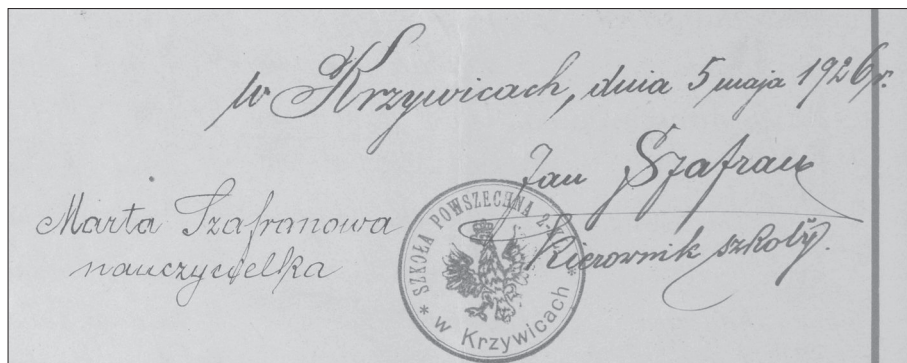 w Krzywicach, dnia 5 maja 1926 r.
Jan Szafran
Kierownik szkoły.
Marta Szafranowa
nauczycielka
* SZKOŁA POWSZECHNA 2-
* w Krzywicach *